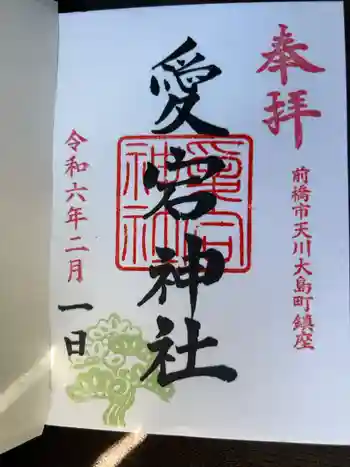 奉拝
前橋市天川大島町鎮座
愛宕神社
令和六年二月一日